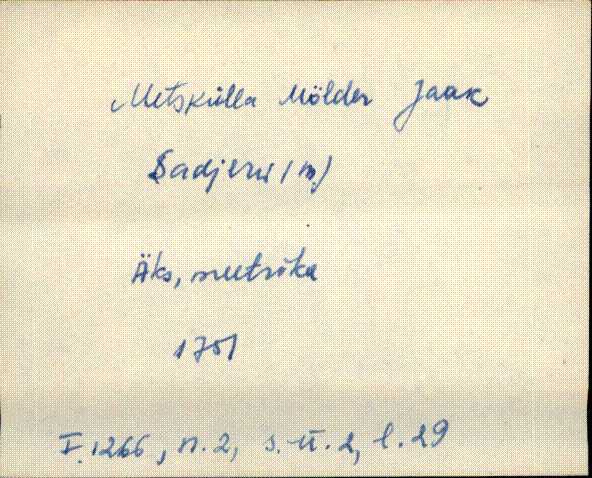 Metskülla Mölder Jaak
Sadjerw (m)
Äks, meetrika
1751
F. 1266, n. 2, s.-ü. 2, l. 29